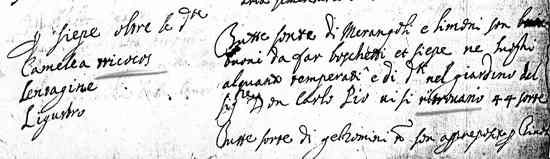 siepe oltre le dte
Camelea tricocos
Lentagine
Ligustro
Tutte sorte di Merangoli e limoni son
buoni da far boschetti et siepe ne luoghi
alquanto temperati e di qti nel giardino del
Sigre Don Carlo Pio vi si ritrovano 44 sorte
Tutte sorte di gelsomini son appreposito p